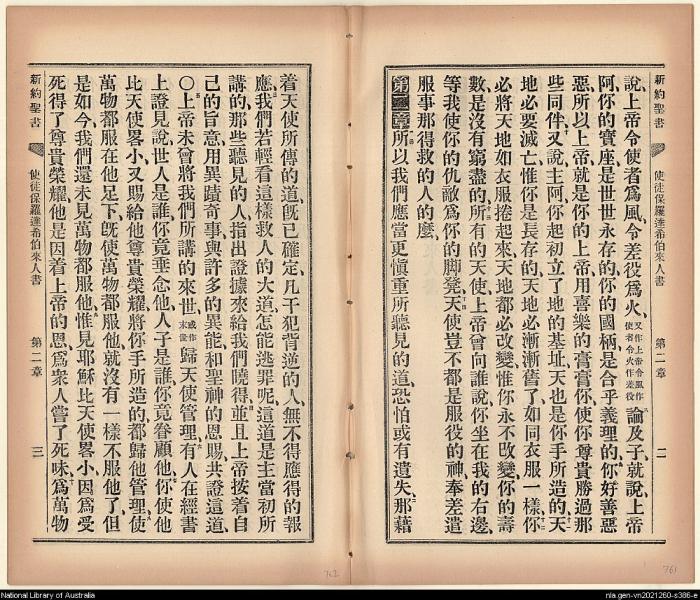 新約聖書 使徒保羅達希伯來人書 第二章 二
說、上帝令使者爲風、令差役爲火、又作上帝令風作使者令火作差役論及子、就說、上帝
阿、你的寶座是世世永存的、你的國柄、是合乎義理的、你好善惡
惡、所以上帝就是你的上帝、用喜樂的膏膏你、使你尊貴勝過那
些同伴、又說、主阿、你起初立了地的基址、天也是你手所造的、天
地必要滅亡、惟你是長存的、天地必漸漸舊了、如同衣服一樣、你
必將天地如衣服捲起來、天地都必改變、惟你永不改變、你的壽
數、是沒有窮盡的、所有的天使、上帝曾向誰說、你坐在我的右邊、
等我使你的仇敵爲你的脚凳、天使豈不都是服役的神、奉差遣
服事那得救的人的麼、
第二章所以我們應當更愼重所聽見的道、恐怕或有遺失、那藉
着天使所傳的道、旣已確定、凡干犯背逆的人、無不得應得的報
應、我們若輕看這樣救人的大道、怎能逃罪呢、這道是主當初所
講的、那些聽見的人、指出證據來給我們曉得、並且上帝按着自
己的旨意、用異蹟奇事、與許多的異能、和聖神的恩賜、共證這道、
○上帝未曾將我們所講的來世、或作末世歸天使管理、有人在經書
上證見說、世人是誰、你竟垂念他、人子是誰、你竟眷顧他、你使他
比天使畧小、又賜給他尊貴榮耀、將你手所造的、都歸他管理、使
萬物都服在他足下、旣使萬物都服他、就沒有一樣不服他了、但
是如今、我們還未見萬物都服他、惟見耶穌比天使畧小、因爲受
死、得了尊貴榮耀、他是因着上帝的恩、爲衆人嘗了死味、爲萬物
新約聖書 使徒保羅達希伯來人書 第二章 三
762
761
National Library of Australia
nla.gen-vn2021260-s386-e